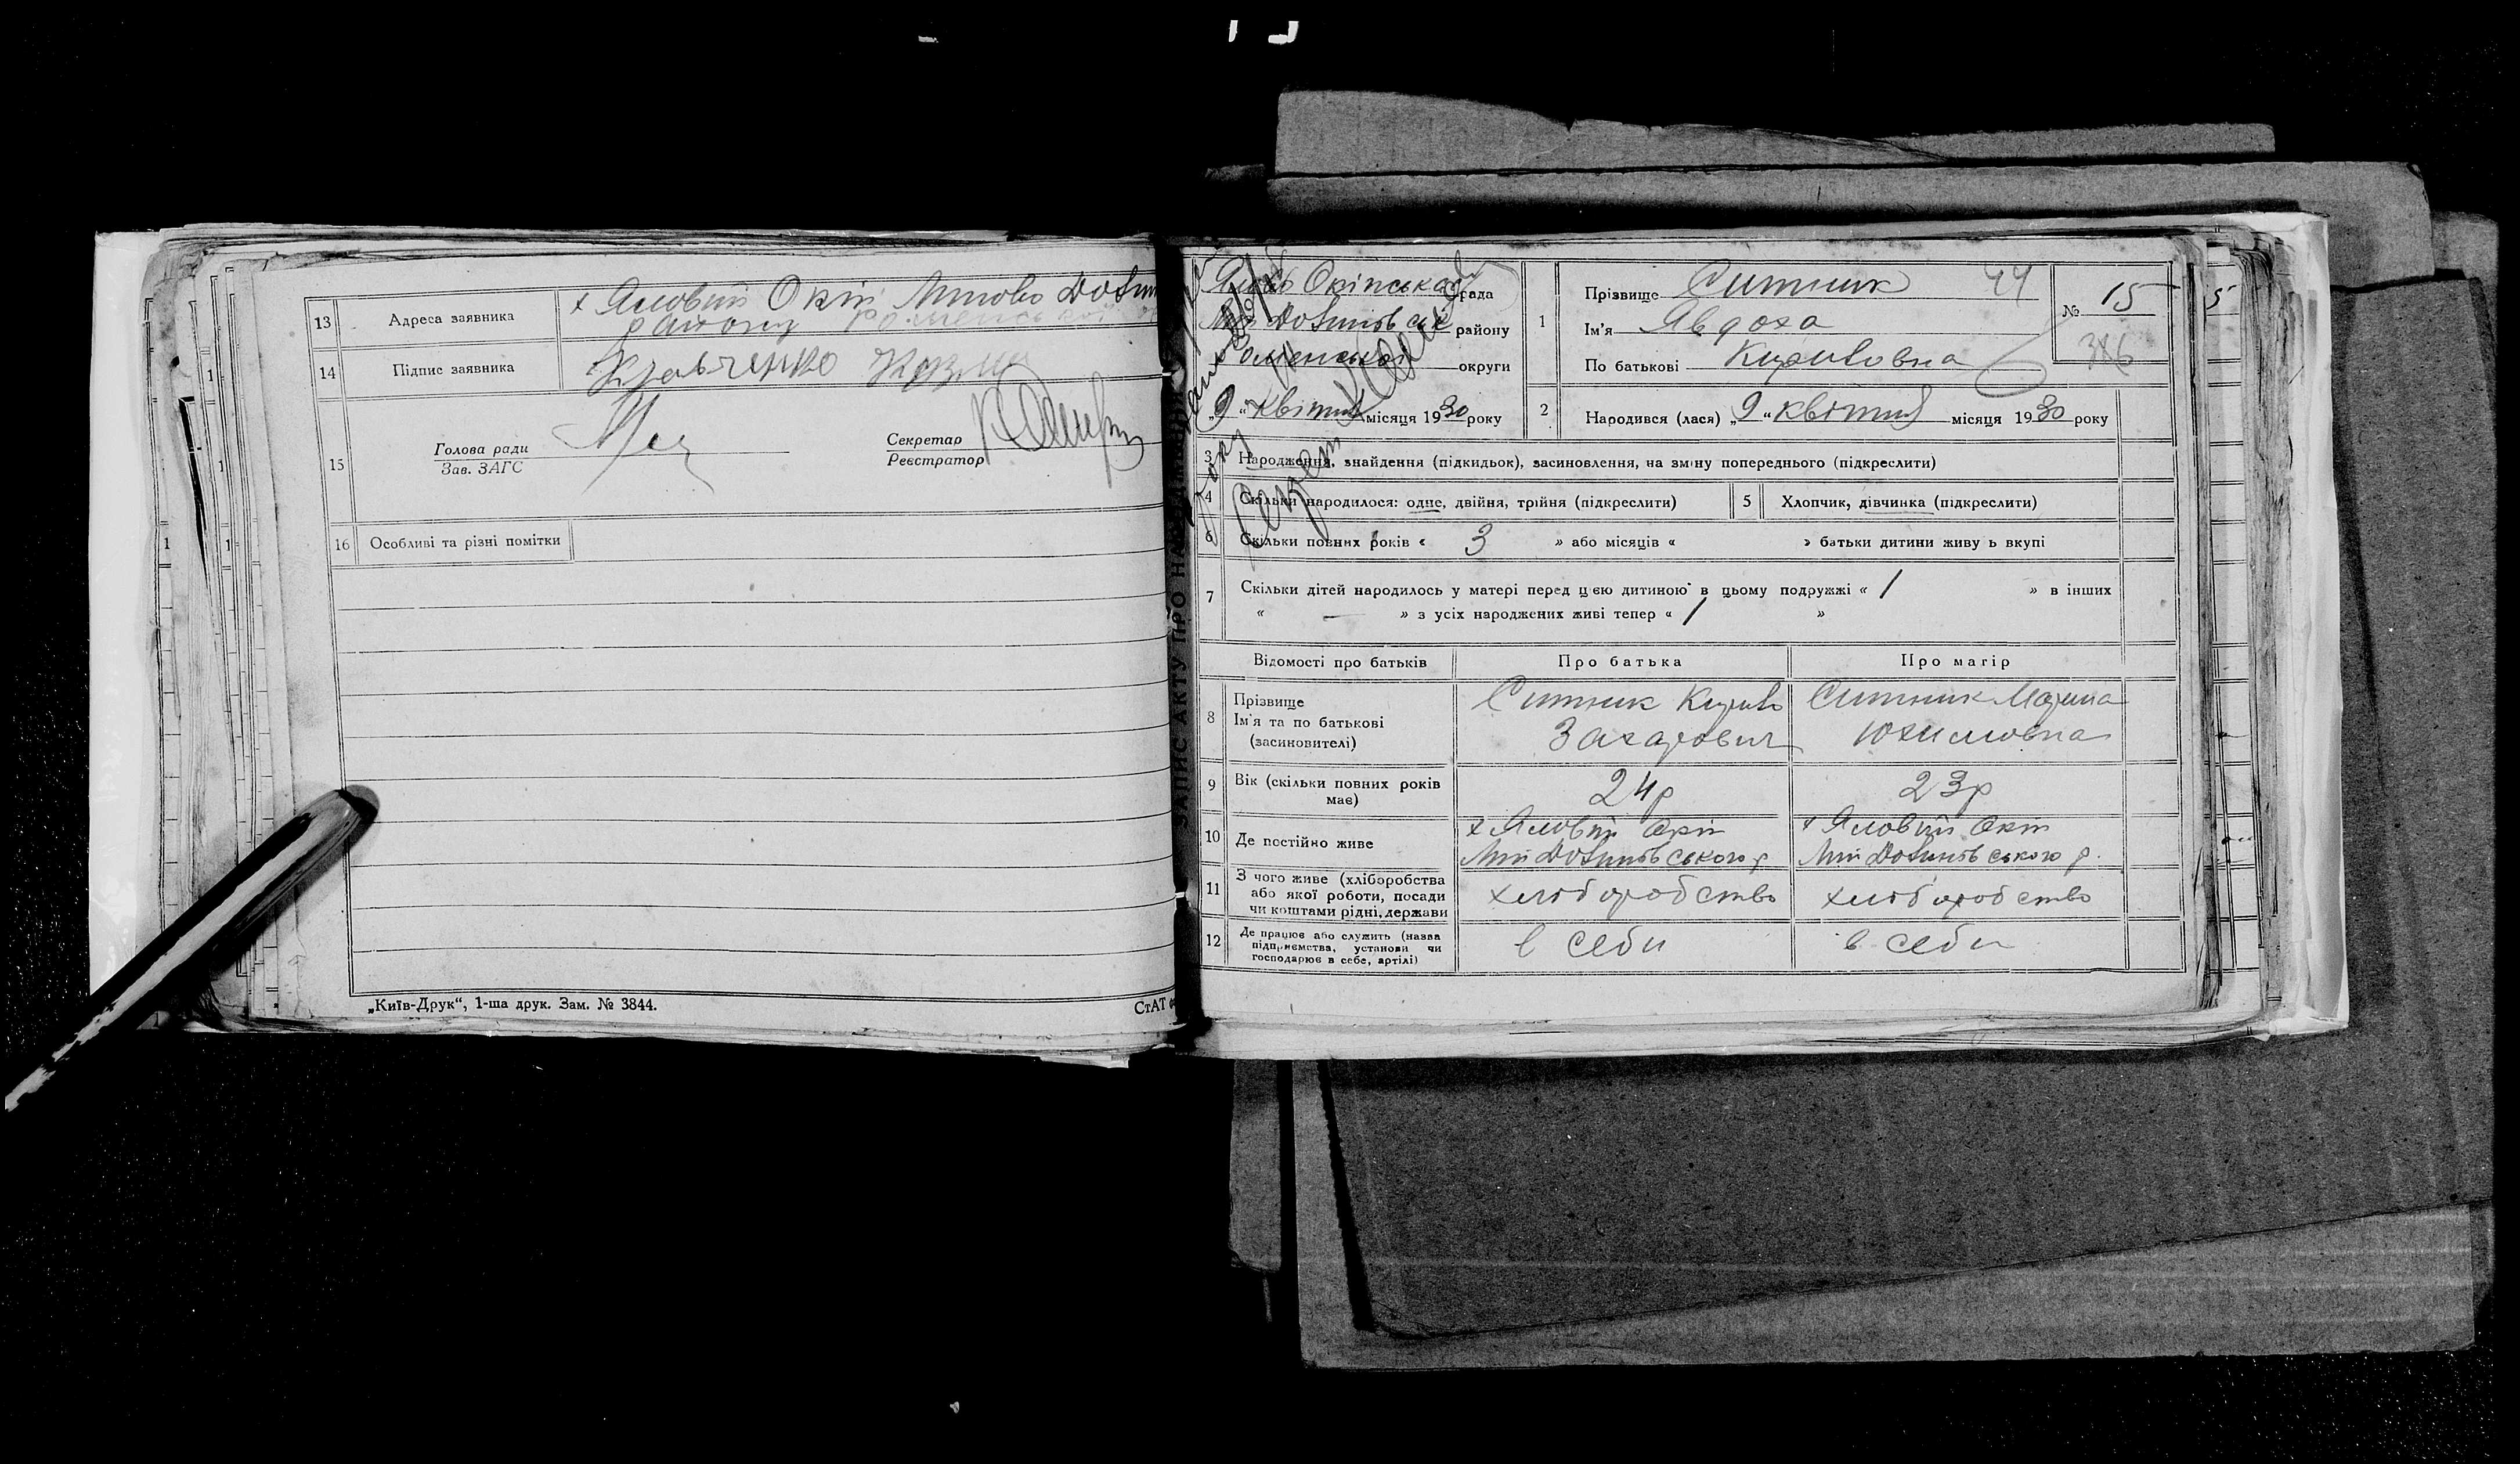 13 Адреса заявника х Яловий Окіп Липово Долин
району Роменської
14 Підпис заявника Кравченко Козма
Голова ради
Зав. ЗАГС
Секретар
Реєстратор
15
16 Особливі та різні помітки
„Київ-Друк“, 1-ша друк. Зам. № 3844.
СтАТ
ЗАПИС АКТУ ПРО НА
Окіпська рада
району
Роменської округи
„9“ квітня місяця 1930 року
1 Прізвище Ситник 44
Ім'я Явдоха
По батькові Кириловна
№ 15
386
2 Народився (лася) „9“ квітня місяця 1930 року
3 Народження, знайдення (підкидьок), засиновлення, на зміну попереднього (підкреслити)
4 Скільки народилося: одне, двійня, трійня (підкреслити) 5 Хлопчик, дівчинка (підкреслити)
6 Скільки повних років « 3 » або місяців « » батьки дитини живу ь вкупі
7 Скільки дітей народилось у матері перед цією дитиною в цьому подружжі « 1 » в інших
« — » з усіх народжених живі тепер « 1 »
Відомості про батьків Про батька Про матір
8 Прізвище
Ім'я та по батькові
(засиновителі)
Ситник Кирило
Захарович
Ситник Марина
Юхимовна
9 Вік (скільки повних років
має)
24р 23р
10 Де постійно живе
х Яловий Окіп
Лип Долиновського р
х Яловий Окіп
Лип Долиновського р.
11 З чого живе (хліборобства
або якої роботи, посади
чи коштами рідні, держави
хліборобство хліборобство
12 Де працює або служить (назва
підприємства, установи чи
господарює в себе, артілі)
в себи в себи
5